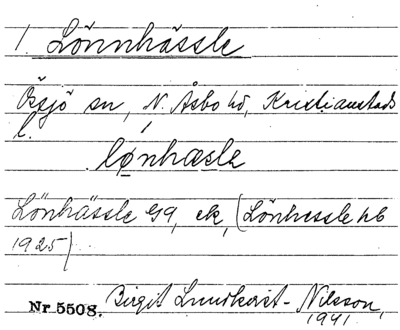 1. Lönnhässle
Össjö sn, N. Åsbo hd, Kristianstads
l.
lønhæsle
Lönhässle G9, ek, (Lönhessle hb
1925)
Nr 5508. Birgit Lundkvist-Nilsson,
1941